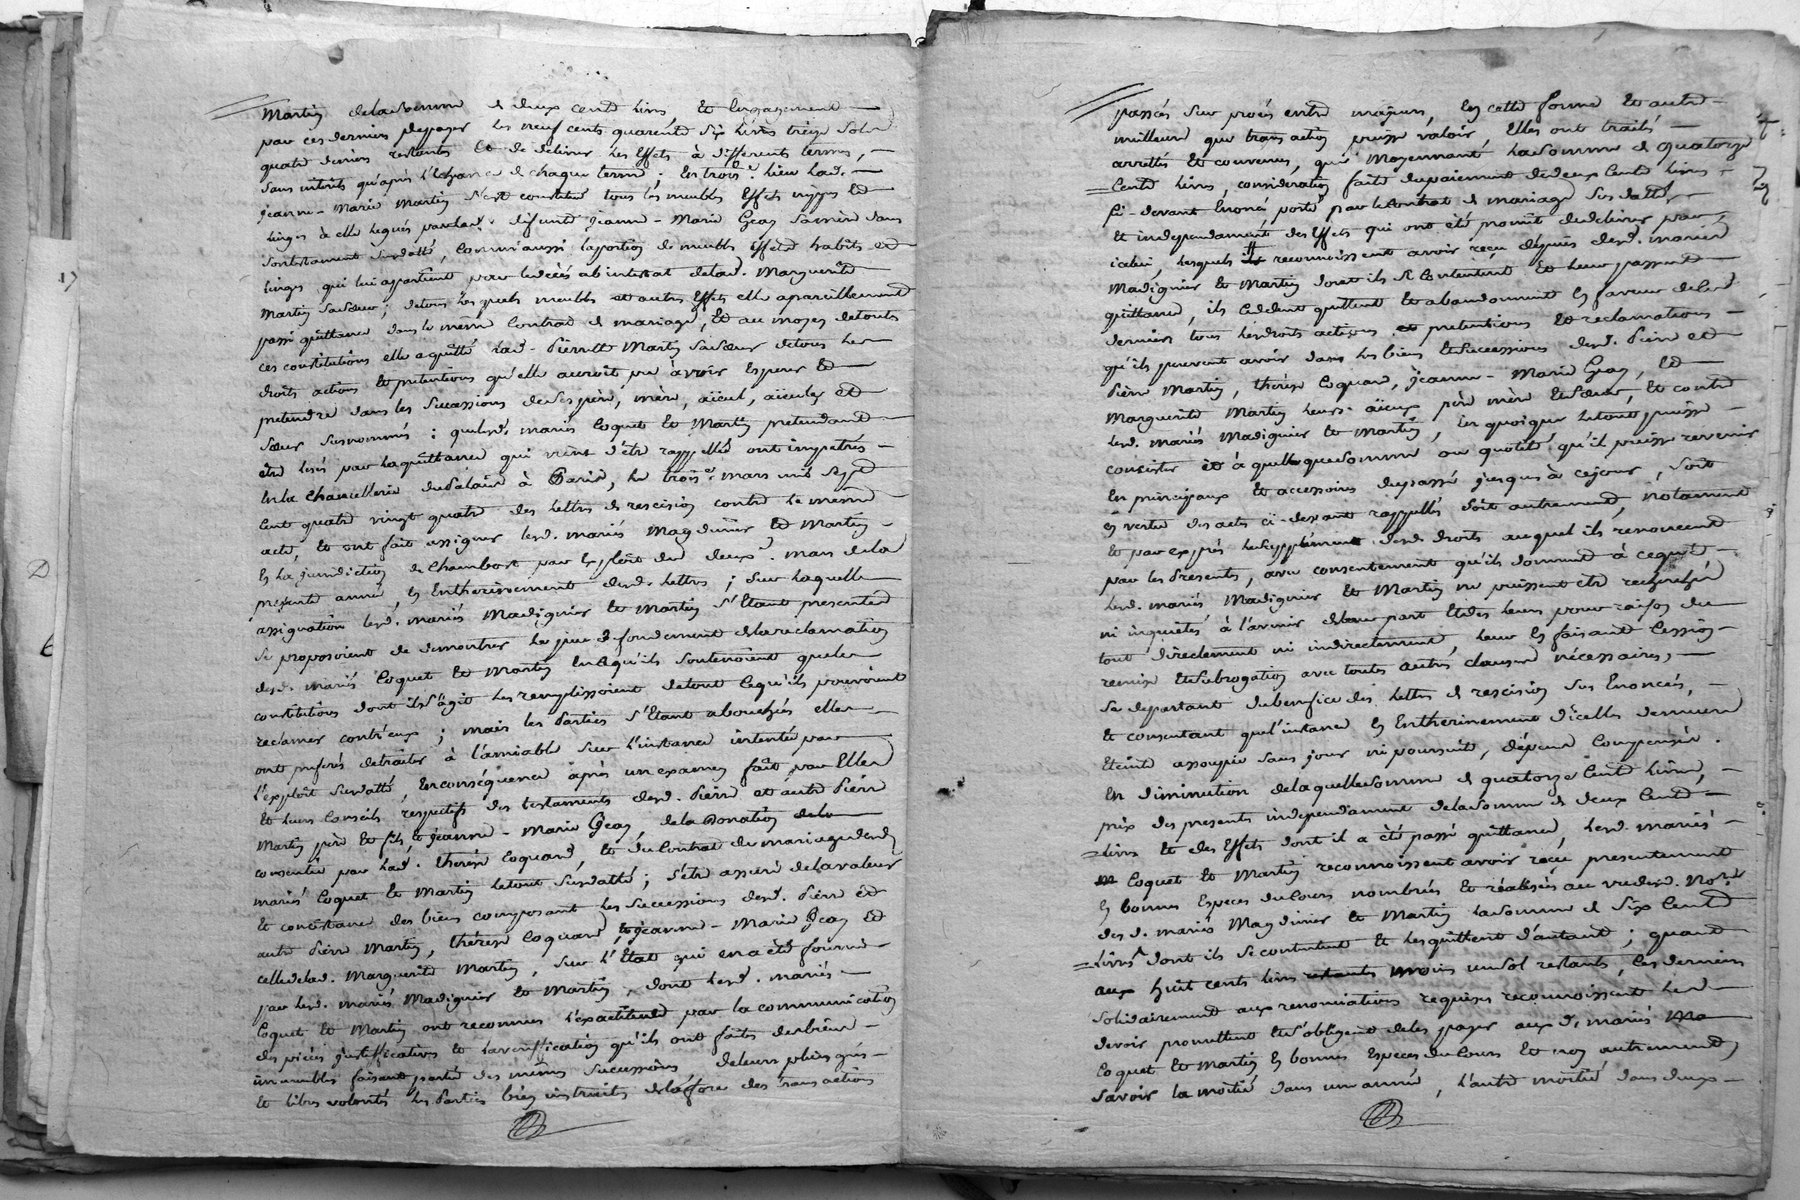 Martin de la somme de deux cents livres et l'engagement
par ces derniers de payer les neuf cents quarente six livres treize sols
quatre deniers restants et de delivrer les Effets à differents termes,
sans interets qu'après l'échéance de chaque terme; En trois.e lieu lad.
jeanne-Marie Martin s'est constitué tous les meubles Effets nippes et
linges à elle legués par lad. defunte jeanne-Marie Geay sa mère dans
son testament susdatté, comm'aussi la portion de meubles effets habits et
linges qui lui apartient par le décès abintestat de lad. Marguerite
Martin sa sœur; de tous les quels meubles et autres Effets elle a pareillement
passé quittance dans le même Contrat de mariage, Et au moyen de touts
ces constitutions elle a quitté lad. Pierrette Martin sa sœur de tous les
droits actions et pretentions qu'elle auroit pu avoir Esperer et
pretendre dans les Successions de ses père, mère, aïeul, aïeule et
sœur susnommés: que lesd. mariés Coquet et Martin pretendant
être lesés par la quittance qui vient d'être rappellée ont impetrés
En la Chancellerie du Palais à Paris, le trois.e mars mil sept
Cent quatre vingt quatre des lettres de rescision contre le même
acte, Et ont fait assigner lesd. mariés Magdinier et Martin
En la jurisdiction de Chambost par Exploit du deux. mars de la
presente année, En Entherinement desd. lettres; sur laquelle
assignation lesd. mariés Madignier et Martin s'Etant presentés
se proposoient de demontrer le peu de fondement de la reclamation
desd. mariés Coquet et Martin En ce qu'ils soutenoient que les
constitutions dont il s'agit les remplissoient de tout ce qu'ils pouvoient
reclamer contr'eux; mais les Parties s'Etant abouchées elles
ont preferés de traiter à l'amiable sur l'instance intentée par
l'exploit susdatté, En conséquence après un examen fait par Elles
Et leurs Conseils respectifs des testaments desd. Pierre et autre Pierre
Martin père et fils et jeanne-Marie Geay, de la Donation
consentie par lad. therèse Coquard, Et du Contrat de mariage desd.
mariés Coquet et Martin le tout susdatté; s'être assuré de la valeur
Et consistance des biens composant les Successions desd. Pierre et
autre Pierre Martin, thérèse Coquard, et jeanne-Marie Geay Et
celle de lad. Marguerite Martin, sur l'Etat qui en a été fourni
par lesd. mariés Madignier et Martin, dont lesd. mariés
Coquet et Martin ont reconnu l'exactitude par la communication
des pièces justifficatives et la verification qu'ils ont faits des biens
immeubles faisant partie des mêmes Successions de leurs pleins gré
Et libres volontés les Parties bien instruites de la force des transactions
passés sur procès entre majeurs, En cette forme Et autre
meilleure que transaction puisse valoir, Elles ont traités
arrettés Et convenus, que Moyennant la somme de quatorze
Cents livres, consideration faite du paiement de deux Cents livres
ci-devant Enoncé, porté par le Contrat de mariage sus datté,
Et independament des Effets qui ont été promit de delivrer par
icelui, lesquels ils reconnoissent avoir reçu depuis desd. mariés
Madignier Et Martin dont ils se Contentent Et leur passent
quittance, ils Cedent quittent Et abandonnent En faveur de ces
derniers tous les droits actions et pretentions Et reclamations
qu'ils peuvent avoir dans les biens Et Successions desd. Pierre et
Pierre Martin, therèse Coquard, jeanne-Marie Geay, Et
Marguerite Martin leurs aïeux père mère Et sœur, Et contre
lesd. mariés Madignier Et Martin, En quoi que le tout puisse
consister et à quelque somme ou quotité qu'il puisse revenir
En principaux Et accessoires du passé jusques à ce jour, soit
En vertu des actes ci-devant rappellés soit autrement, notament
Et par exprès le Supplément desd. droits auquel ils renoncent
par les Presentes, avec consentement qu'ils donnent à ce que
lesd. mariés Madignier Et Martin ne puissent être recherchés
ni inquietés à l'avenir de leur part Et des leurs pour raison du
tout directement ni indirectement, leur En faisant Cession
remise Et Subrogation avec toutes autres clauses nécessaires,
Se departant du benefice des lettres de rescision sus Enoncés,
Et consentant que l'instance En Entherinement d'icelles demeure
Eteinte assoupie sans jour ni poursuite, dépens Compensés.
En diminution de laquelle somme de quatorze Cents livres,
prix des presentes independament de la somme de deux Cents
livres Et des Effets dont il a été passé quittance, lesd. mariés
Coquet et Martin reconnoissent avoir reçu presentement
En bonnes Especes du Cours nombrées Et réalisées au vu desd. No.res
desd. mariés Magdinier Et Martin la somme de Six Cents
livres dont ils se contentent Et les quittent d'autant; quand
aux huit cents livres moins un sol restants, les derniers
solidairement aux renonciations requises reconnoissent les
devoir promettent Et s'obligent de les payer aux d. mariés
Coquet Et Martin En bonnes Especes du Cours Et non autrement,
Savoir la moitié dans un année, l'autre moitié dans deux